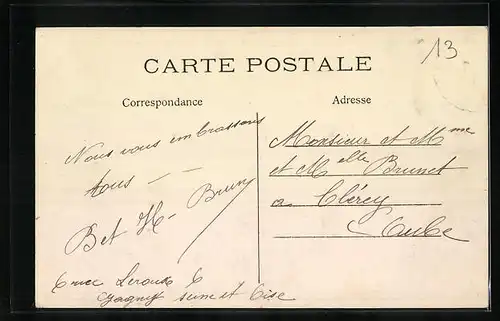 13
CARTE POSTALE
Correspondance
Adresse
Nous vous embrassons
tous — —
B et H. Brun
6 rue Leroux 6
Gagny Seine et Oise
Monsieur et Mme
et Melle Brunet
a Clérey
Aube